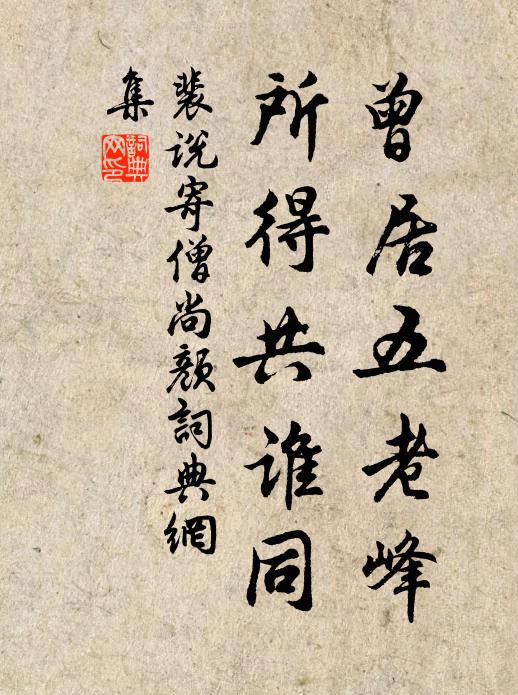 曾居五老峰
所得共誰同
裴説寄僧尚顏詞典網
集
詞典
网印